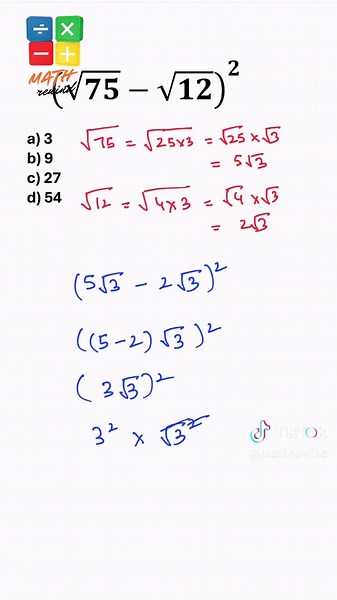 ÷ ×
− +
MATH
rewind
(√75 − √12)²
a) 3
b) 9
c) 27
d) 54
√75 = √25×3 = √25 × √3
= 5√3
√12 = √4×3 = √4 × √3
= 2√3
(5√3 − 2√3)²
((5−2)√3)²
(3√3)²
3² × √3²
TIKTOK